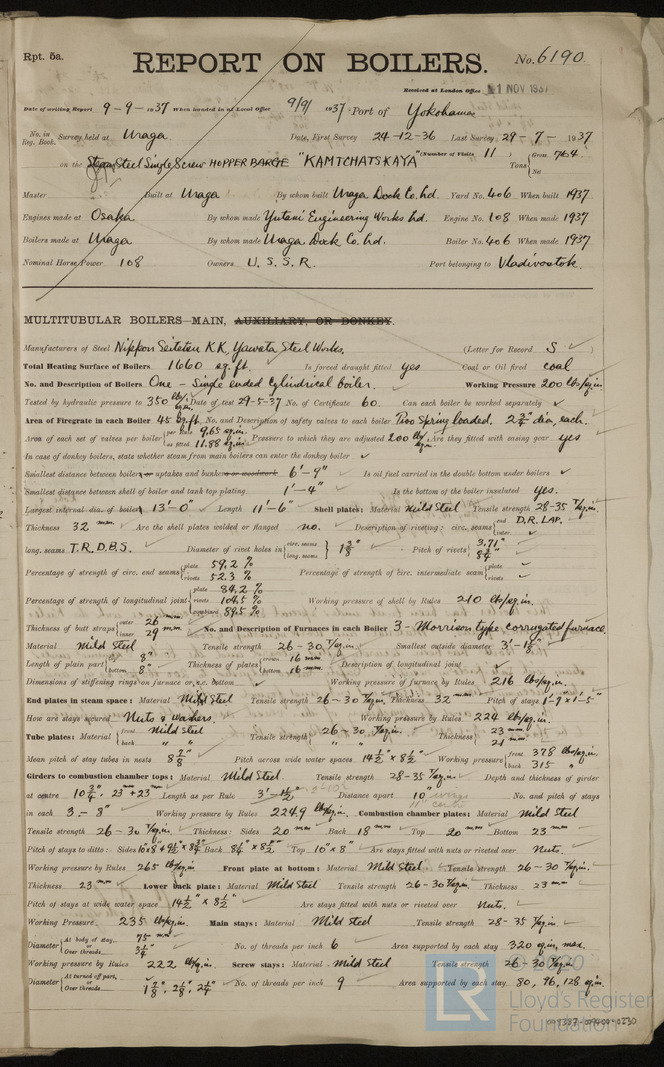 Rpt. 5a.
REPORT ON BOILERS.
No. 6190
Received at London Office 1 NOV 1937
Date of writing Report 9-9-1937 When handed in at Local Office 9/9/1937 Port of Yokohama
No. in Reg. Book. Survey held at Uraga Date, First Survey 24-12-36 Last Survey 29-7-1937
on the Steel Single Screw HOPPER BARGE "KAMTCHATSKAYA" (Number of Visits 11) Tons {Gross 764 Net
Master Built at Uraga By whom built Uraga Dock Co. Ld. Yard No. 406 When built 1937
Engines made at Osaka By whom made Yutani Engineering Works Ld. Engine No. 108 When made 1937
Boilers made at Uraga By whom made Uraga Dock Co. Ld. Boiler No. 406 When made 1937
Nominal Horse Power 108 Owners U.S.S.R. Port belonging to Vladivostok.
MULTITUBULAR BOILERS MAIN, AUXILIARY, OR DONKEY.
Manufacturers of Steel Nippon Seitetsu K.K. Yawata Steel Works. (Letter for Record S)
Total Heating Surface of Boilers 1660 sq. ft. Is forced draught fitted yes Coal or Oil fired coal
No. and Description of Boilers One - Single ended Cylindrical boiler. Working Pressure 200 lbs/sq.in.
Tested by hydraulic pressure to 350 lbs/sq.in. Date of test 29-5-37 No. of Certificate 60. Can each boiler be worked separately ✓
Area of Firegrate in each Boiler 45 sq.ft. No. and Description of safety valves to each boiler Two Spring loaded. 2¾" dia. each.
Area of each set of valves per boiler {per Rule 9.65 sq.in. as fitted 11.88 sq.in. Pressure to which they are adjusted 200 lbs/sq.in. Are they fitted with easing gear yes
In case of donkey boilers, state whether steam from main boilers can enter the donkey boiler ✓
Smallest distance between boilers or uptakes and bunkers or woodwork 6'-9" Is oil fuel carried in the double bottom under boilers ✓
Smallest distance between shell of boiler and tank top plating 1'-4" Is the bottom of the boiler insulated yes.
Largest internal dia. of boilers 13'-0" Length 11'-6" Shell plates: Material Mild Steel Tensile strength 28-35 T/sq.in.
Thickness 32 mm. Are the shell plates welded or flanged no. Description of riveting: circ. seams {end D.R. LAP. inter. ✓
long. seams T.R.D.B.S. Diameter of rivet holes in {circ. seams long. seams} 1⅜" Pitch of rivets {3.71" 8¾"
Percentage of strength of circ. end seams {plate 59.2 % rivets 52.3 % Percentage of strength of circ. intermediate seam {plate ✓ rivets ✓
Percentage of strength of longitudinal joint {plate 84.2 % rivets 104.5 % combined 89.5 % Working pressure of shell by Rules 210 lbs/sq.in.
Thickness of butt straps {outer 26 mm. inner 29 mm. No. and Description of Furnaces in each Boiler 3 - Morrison type corrugated furnace.
Material Mild Steel Tensile strength 26-30 T/sq.in. Smallest outside diameter
Length of plain part {top 8" bottom 8" Thickness of plates {crown 16 mm bottom 16 mm. Description of longitudinal joint ✓
Dimensions of stiffening rings on furnace or c.c. bottom ✓ Working pressure of furnace by Rules 216 lbs/sq.in.
End plates in steam space: Material Mild Steel Tensile strength 26-30 T/sq.in. Thickness 32 mm Pitch of stays 1'-9" x 1'-5"
How are stays secured Nuts & washers. Working pressure by Rules 224 lbs/sq.in.
Tube plates: Material {front Mild Steel back " " Tensile strength {26-30 T/sq.in. " " Thickness {23 mm 21 mm
Mean pitch of stay tubes in nests 8⅞" Pitch across wide water spaces 14½" x 8½" Working pressure {front 378 lbs/sq.in. back 315 "
Girders to combustion chamber tops: Material Mild Steel Tensile strength 28-35 T/sq.in. Depth and thickness of girder
at centre 10¾", 23 mm + 23 mm Length as per Rule 3'-1½" Distance apart 10" No. and pitch of stays
in each 3 - 8" Working pressure by Rules 224.9 lbs/sq.in. Combustion chamber plates: Material Mild Steel
Tensile strength 26-30 T/sq.in. Thickness: Sides 20 mm Back 18 mm Top 20 mm Bottom 23 mm
Pitch of stays to ditto: Sides 10" x 8" & 9½" x 8¾" Back 8¾" x 8½" Top 10" x 8" Are stays fitted with nuts or riveted over Nuts.
Working pressure by Rules 265 lbs/sq.in Front plate at bottom: Material Mild Steel Tensile strength 26-30 T/sq.in.
Thickness 23 mm Lower back plate: Material Mild Steel Tensile strength 26-30 T/sq.in. Thickness 23 mm
Pitch of stays at wide water space 14½" x 8½" Are stays fitted with nuts or riveted over Nuts.
Working Pressure 235 lbs/sq.in. Main stays: Material Mild Steel Tensile strength 28-35 T/sq.in.
Diameter {At body of stay, 75 mm or Over threads 3¼" No. of threads per inch 6 Area supported by each stay 320 sq.in. max.
Working pressure by Rules 222 lbs/sq.in. Screw stays: Material Mild Steel Tensile strength 26-30 T/sq.in.
Diameter {At turned off part, or Over threads 1⅞", 2⅛", 2¼" No. of threads per inch 9 Area supported by each stay 80, 96, 128 sq.in.
LR
Lloyd's Register
Foundation
004387-004400-0230